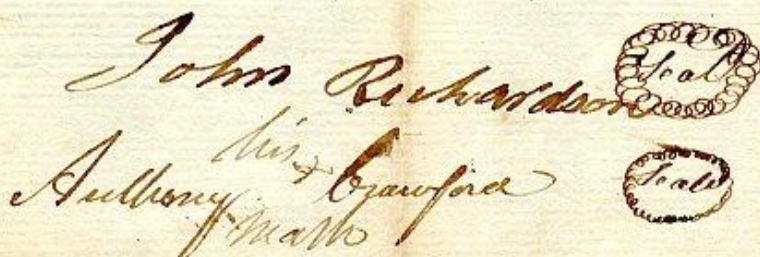 John Richardson Seal
his
Anthony + Crawford Seal
mark